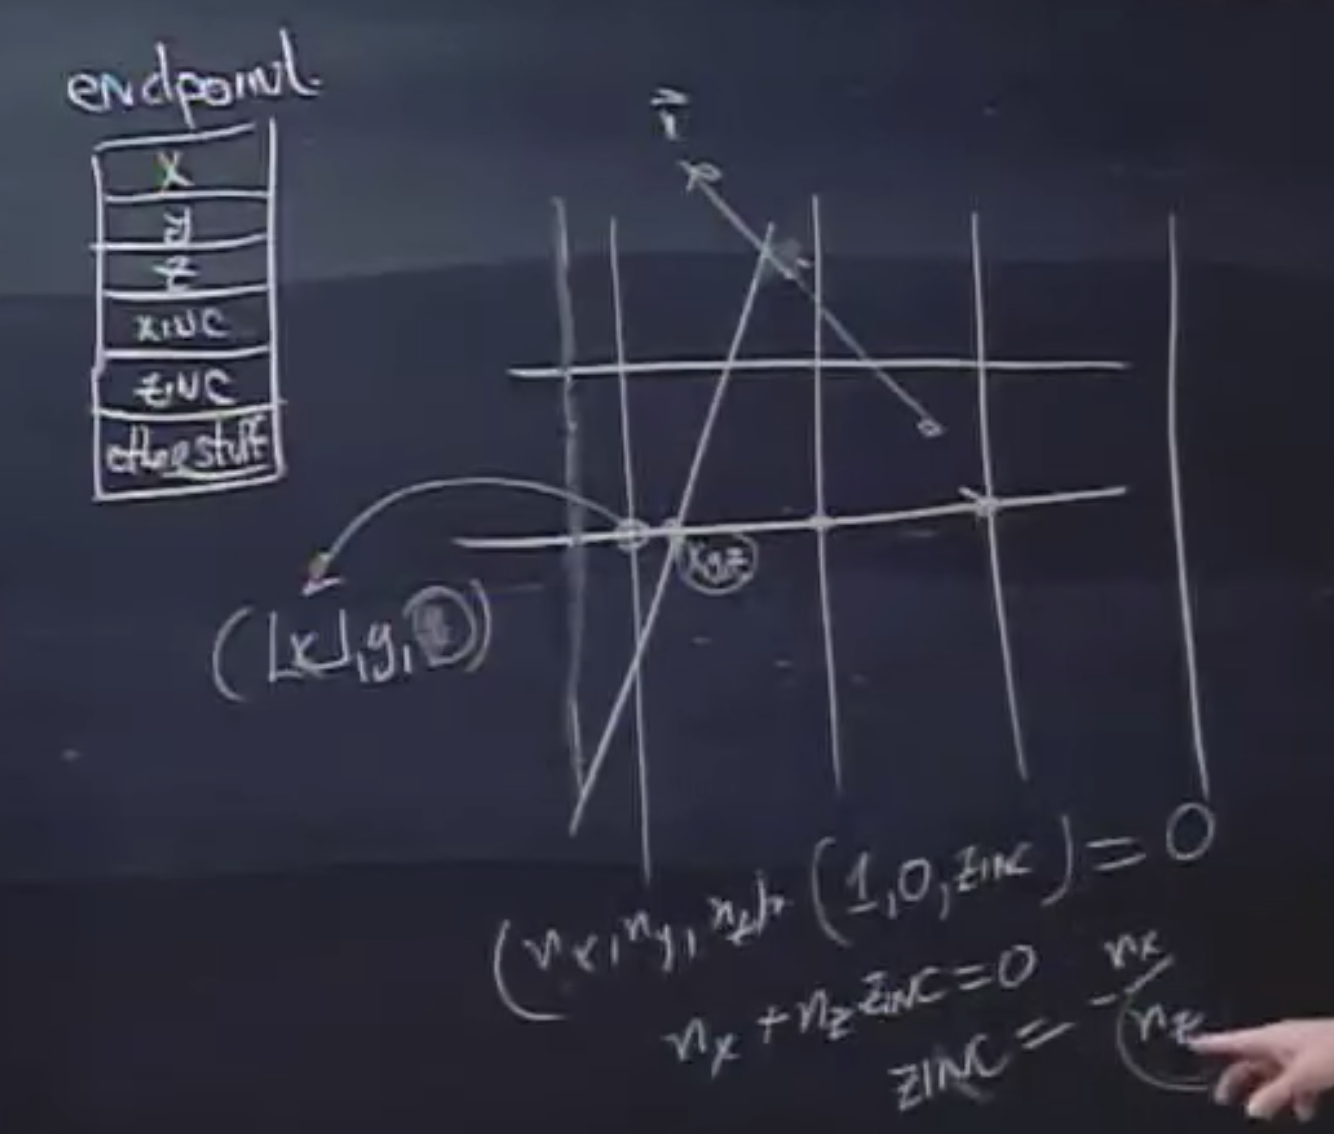 endpoint.
x
y
z
xINC
zINC
other stuff
x,y,z
(⌊x⌋, y, )
(nx, ny, nz) · (1, 0, zINC) = 0
nx + nz zINC = 0
zINC = - nx / nz